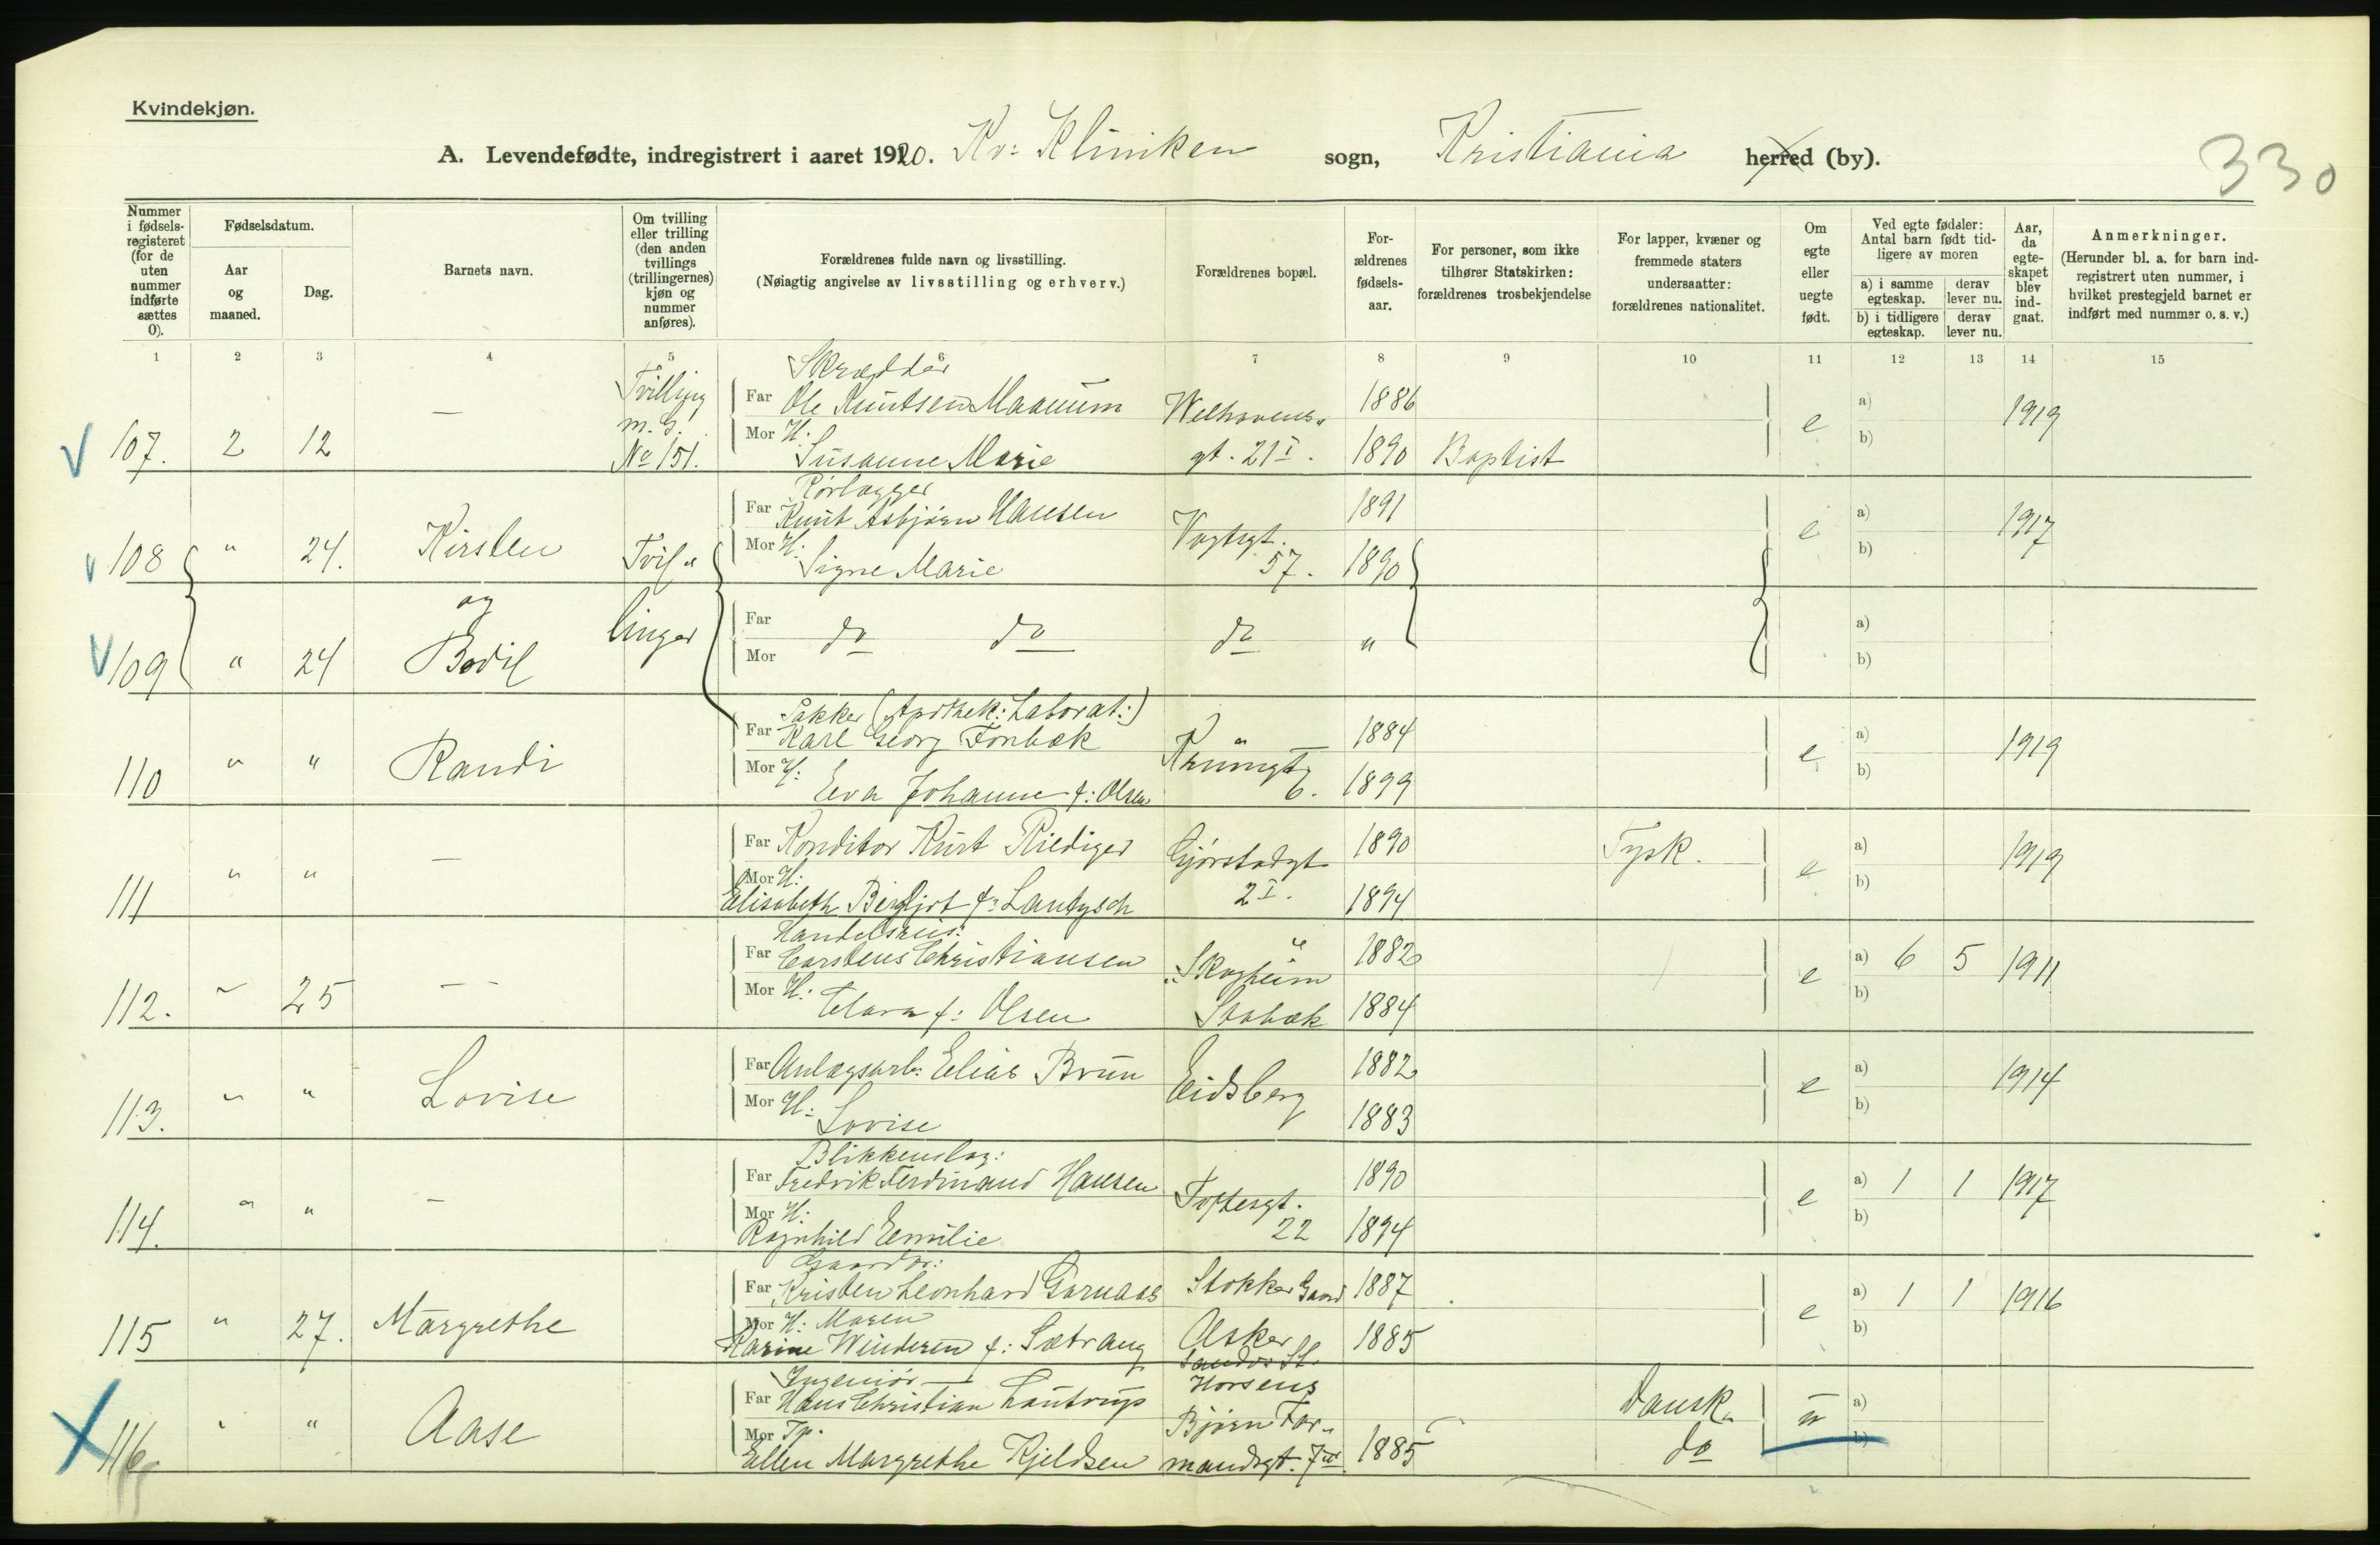 Kvindekjøn.
A. Levendefødte, indregistrert i aaret 1920. Kv: Kliniken sogn, Kristiania herred (by).
330
Nummer i fødselsregisteret (for de uten nummer indførte sættes 0).
Fødselsdatum.
Aar og maaned.
Dag.
Barnets navn.
Om tvilling eller trilling (den anden tvillings (trillingernes) kjøn og nummer anføres).
Forældrenes fulde navn og livsstilling.
(Nøiagtig angivelse av livsstilling og erhverv.)
Forældrenes bopæl.
Forældrenes fødselsaar.
For personer, som ikke tilhører Statskirken: forældrenes trosbekjendelse
For lapper, kvæner og fremmede staters undersaatter: forældrenes nationalitet.
Om egte eller uegte født.
Ved egte fødsler: Antal barn født tidligere av moren
a) i samme egteskap. derav lever nu.
b) i tidligere egteskap. derav lever nu.
Aar, da egteskapet blev indgaat.
Anmerkninger.
(Herunder bl. a. for barn indregistrert uten nummer, i hvilket prestegjeld barnet er indført med nummer o. s. v.)
1 2 3 4 5 6 7 8 9 10 11 12 13 14 15
Skrædder
107. 2 12 — Tvilling m. G. No 151. Far Ole Knutsen Maanum Welhavens- 1886 e a) 1919
Mor H: Susanne Marie gt. 21 I. 1890 Baptist b)
Rørlægger
108 " 24. Kirsten Tvil- Far Knut Asbjørn Hansen Vogtsgt. 1891 e a) 1917
Mor H: Signe Marie 57. 1890 b)
og
109 " 24 Bodil linger Far do do do " a)
Mor b)
Pakker (Apothek: Laborat:)
110 " " Randi Far Karl Georg Fonbæk 1884 e a) 1919
Mor H: Eva Johanne f: Olsen 6. 1899 b)
111 " " — Far Konditor Kurt Riediger Gjørstadgt 1890 Tysk. e a) 1919
Mor H: Elisabeth Bergljot f: 2 I. 1894 b)
112. " 25 — Far Carstens Christiansen "Skogheim" 1882 e a) 6 5 1911
Mor H: Clara f: Olsen Stabæk 1884 b)
113. " " Lovise Far Anlægsarb: Elias Brun Eidsberg 1882 e a) 1914
Mor H: Lovise 1883 b)
Blikkenslag:
114. " " — Far Fredrik Ferdinand Hansen Toftesgt. 1890 e a) 1 1 1917
Mor H: Ragnhild Emilie 22 1894 b)
115 " 27. Margrethe Far Kristen Leonhard Garnaas Stokker Gaard 1887 e a) 1 1 1916
Mor H: Maren Karine Winderen f: Sætrang Asker 1885 b)
Ingeniør
116 " " Aase Far Hans Christian Lautrup Horsens Dansk. u a)
Mor Tp. Ellen Margrethe Kjeldsen Bjørn Far-mandsgt. 7 1885 do b)